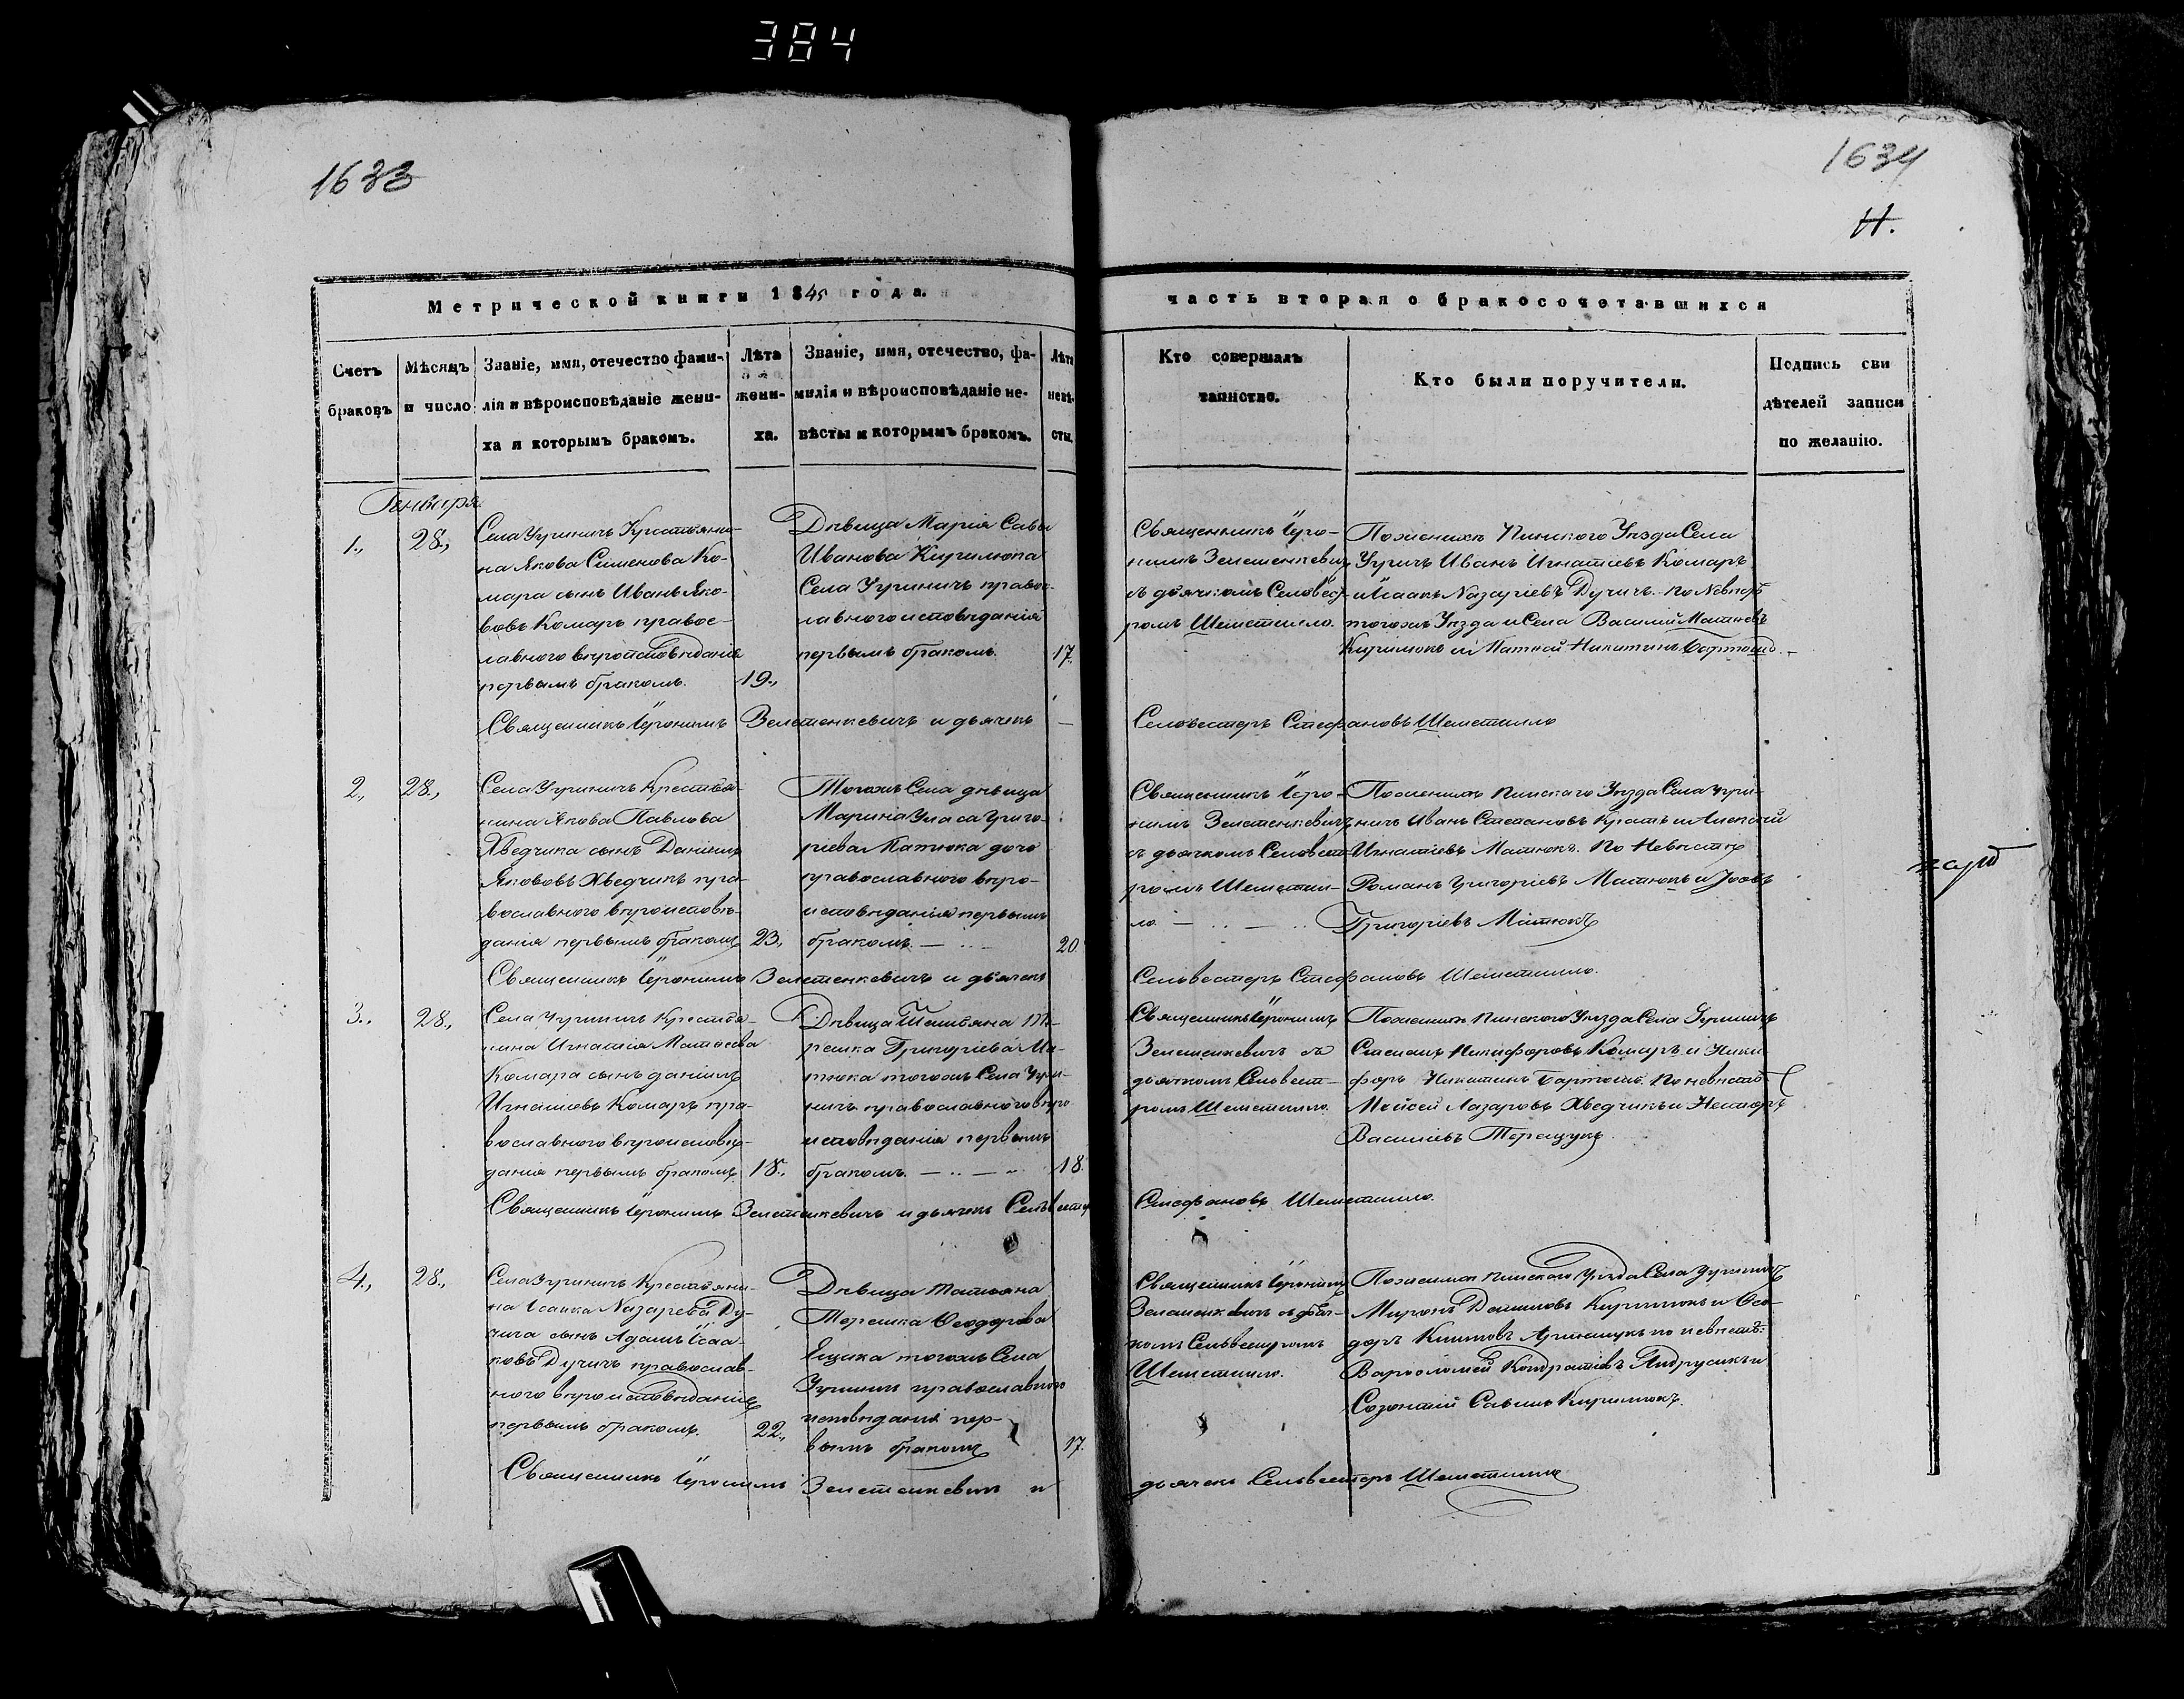 384
1633
1634
Н.
Метрической книги 1845 года.
часть вторая о бракосочетавшихся
Счетъ браковъ
Мѣсяцъ и число
Званіе, имя, отечество фами-
лія и вѣроисповѣданіе жени-
ха и которымъ бракомъ.
Лѣта
жени-
ха.
Званіе, имя, отечество, фа-
милія и вѣроисповѣданіе не-
вѣсты и которымъ бракомъ.
Лѣта
невѣ-
сты.
Кто совершалъ
таинство.
Кто были поручители.
Подпись сви
дѣтелей записи
по желанію.
Генваря
1., 28.,
Села Угриничъ Крестьяни-
на Якова Сименова Ко-
мара сынъ Иванъ Яко-
вовъ Комаръ правос-
лавного вѣроисповѣданія
первымъ бракомъ. 19.,
Дѣвица Марія Савы
Иванова Киримока
Села Угриничъ правос-
лавного исповѣданія
первымъ бракомъ. 17.
Священникъ Іеро-
нимъ Зелетенкевичъ
съ дьячкомъ Селовест-
ромъ Шеметилло.
Пожениху Пинского Уѣзда Села
Угричъ Иванъ Игнатіевъ Комаръ
и Исаакъ Назаріевъ Дучичъ. по Невѣстѣ
тогожъ Уѣзда и Села Василій Матѣевъ
Киримокъ и Матѳей Никитинъ Бартошъ.
Священникъ Іеронимъ Зелетенкевичъ и дьячекъ
Селовестеръ Стефановъ Шеметилло
2., 28.,
Села Угриничъ Крестья-
нина Якова Павлова
Хведчика сынъ Даніилъ
Якововъ Хведчикъ пра-
вославного вѣроисповѣ-
данія первымъ бракомъ 23.,
Тогожъ Села дѣвица
Марина Уласа Григо-
ріева Матюка дочь
православного вѣро-
исповѣданія первымъ
бракомъ. 20
Священникъ Іеро-
нимъ Зелетенкевичъ
съ дьячкомъ Селовест-
ромъ Шеметил-
ло
Пожениху Пинскаго Уѣзда Села Угри-
ничъ Иванъ Степановъ Кротъ и Алексѣй
Игнатіевъ Матюкъ. По Невѣстѣ
Романъ Григоріевъ Матюкъ и Іовъ
Григоріевъ Матюкъ
Священникъ Іеронимъ Зелетенкевичъ и дьячекъ
Сельвестеръ Стефановъ Шеметилло.
3., 28.,
Села Угриничъ Крестья-
нина Игнатія Матѳеева
Комара сынъ Даніилъ
Игнатовъ Комаръ пра-
вославного вѣроисповѣ-
данія первымъ бракомъ 18.,
Дѣвица Татьяна Те-
решка Григоріева Ма-
тюка тогожъ Села Угри-
ничъ православного вѣро
исповѣданія первымъ
бракомъ. 18.
Священникъ Іеронимъ
Зелетенкевичъ съ
дьячкомъ Сельвест-
ромъ Шеметилло.
Пожениху Пинского Уѣзда Села Угриничъ
Степанъ Никифоровъ Комаръ и Ники
форъ Никитинъ Бартошъ. По невѣстѣ
Мойсей Лазаровъ Хведчикъ и Несторъ
Василіевъ Терещукъ
Священникъ Іеронимъ Зелетенкевичъ и дьячекъ Сельвестеръ
Стефановъ Шеметилло.
4., 28.,
Села Угриничъ Крестьяни-
на Ісаака Назарева Ду-
чича сынъ Адамъ Ісаа-
ковъ Дучичъ православ-
ного вѣроисповѣданія
первымъ бракомъ. 22.,
Дѣвица Татьяна
Терешка Ѳеодорова
Ящика тогожъ Села
Угриничъ православного
исповѣданія пер-
вымъ бракомъ 17.
Священникъ Іеронимъ
Зелетенкевичъ съ дьяч-
комъ Сельвестромъ
Шеметилло.
Пожениху Пинского Уѣзда Села Угриничъ
Миронъ Даниловъ Киримокъ и Ѳео-
доръ Климовъ по невѣстѣ:
Варѳоломей Кондратіевъ Яндрусикъ и
Созонтій Савинъ Киримокъ.
Священникъ Іеронимъ Зелетенкевичъ и
дьячекъ Сельвестеръ Шеметилло